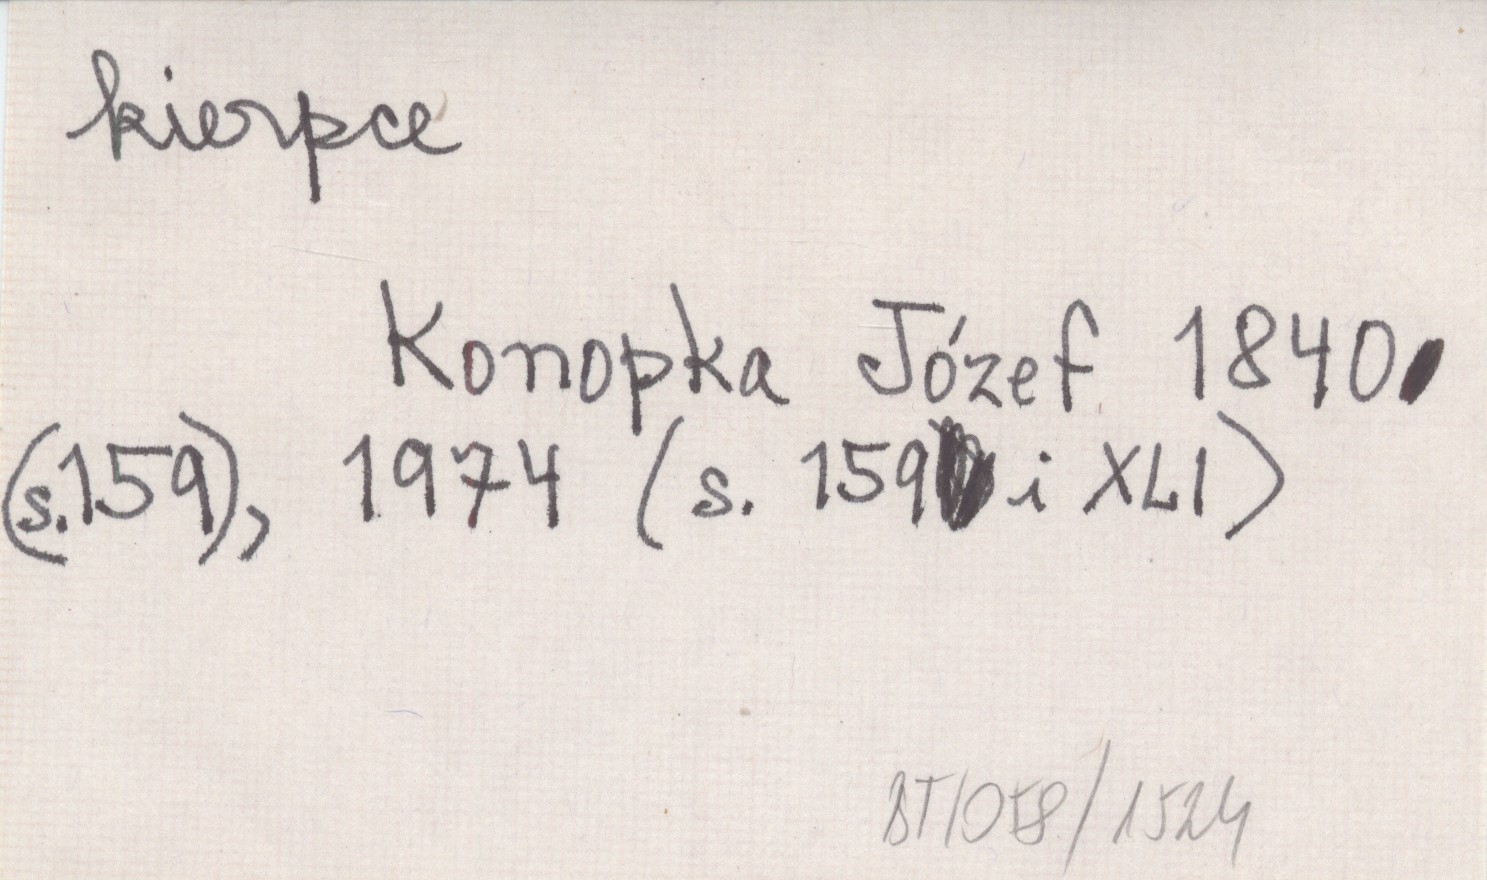 kierpce
Konopka Józef 1840
(s.159), 1974 (s. 159 i XLI)
BT/058/1524